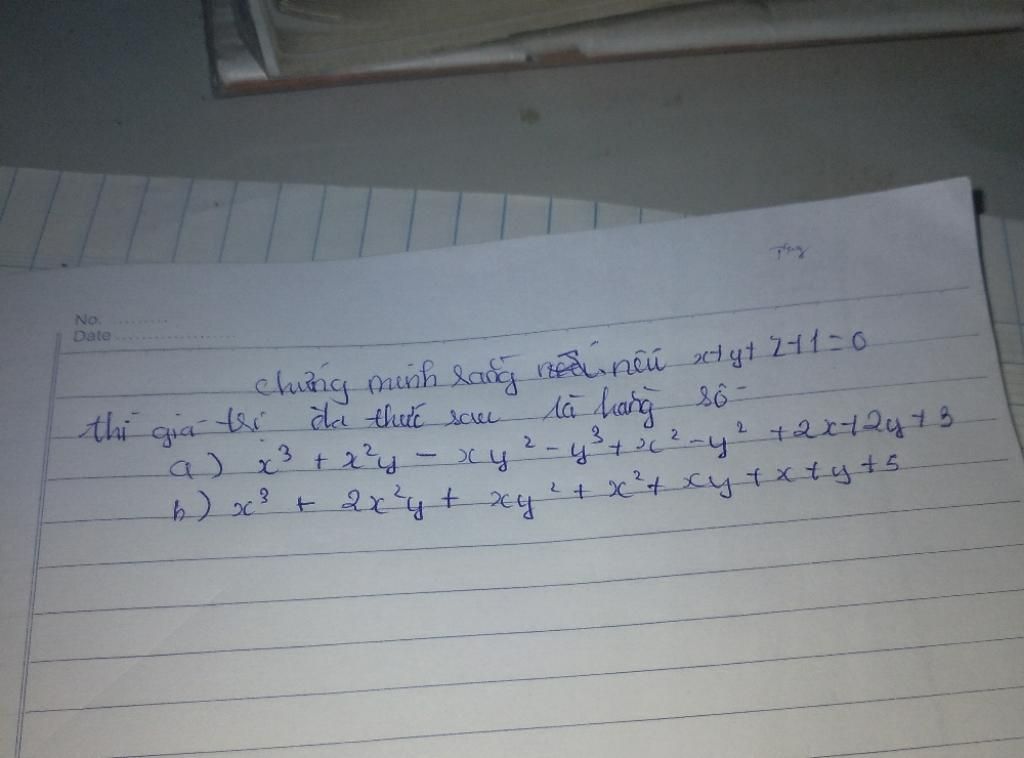 No. ..........
Date ......................
Chứng minh rằng nếu x+y+z+1=0
thì giá trị đa thức sau là hằng số
a) x³ + x²y - xy² - y³ + x² - y² + 2x + 2y + 3
b) x³ + 2x²y + xy² + x² + xy + x + y + 5